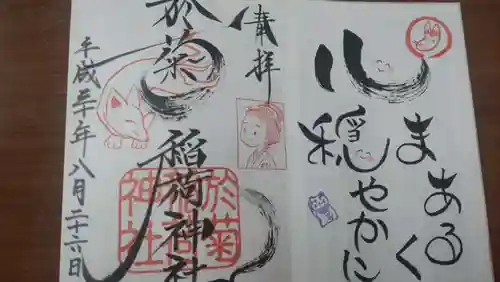 まあるく
心穏やかに
奉拝
於菊稲荷神社
平成三十年八月二十六日
於菊
稲荷
神社